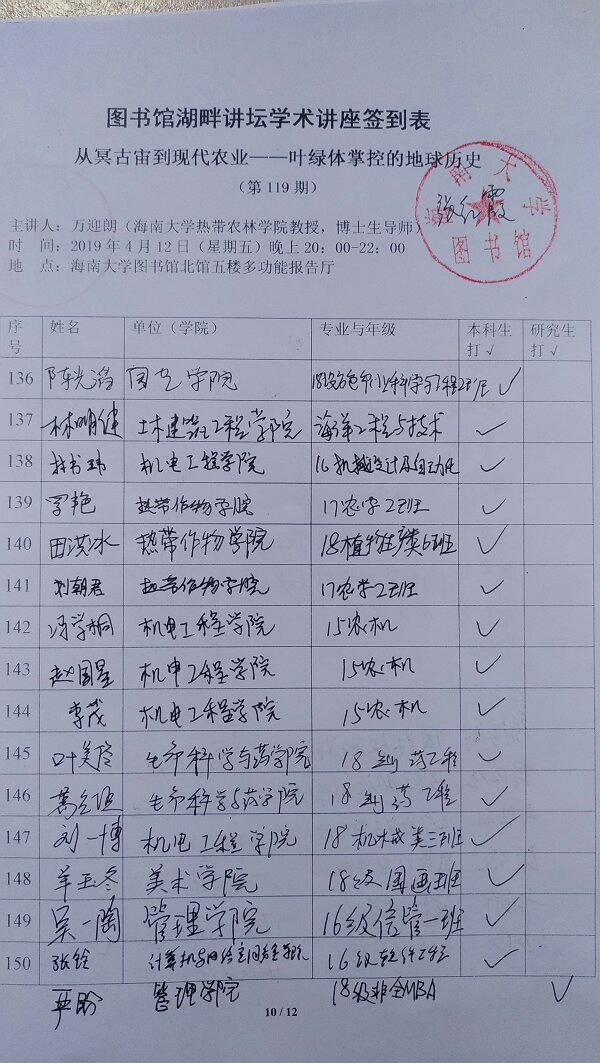 图书馆湖畔讲坛学术讲座签到表
从冥古宙到现代农业——叶绿体掌控的地球历史
（第 119 期）
海南大学
图书馆
张红霞
主讲人：万迎朗（海南大学热带农林学院教授，博士生导师）
时 间：2019 年 4 月 12 日（星期五）晚上 20：00-22：00
地 点：海南大学图书馆北馆五楼多功能报告厅
序号 姓名 单位（学院） 专业与年级 本科生打 √ 研究生打 √
136 学院 ✓
137 林明健 土木建筑工程学院 海洋工程与技术 ✓
138 林书玮 机电工程学院 16机械设计及自动化 ✓
139 罗艳 热带作物学院 17农学2班 ✓
140 田洪冰 热带作物学院 18植物生产类6班 ✓
141 刘朝君 热带作物学院 17农学2班 ✓
142 冯学桐 机电工程学院 15农机 ✓
143 赵国星 机电工程学院 15农机 ✓
144 李茂 机电工程学院 15农机 ✓
145 生命科学与药学院 18 生物制药工程 ✓
146 生命科学与药学院 18 生物制药工程 ✓
147 刘一博 机电工程学院 18机械类三班 ✓
148 羊玉冬 美术学院 18级国画班 ✓
149 吴一陶 管理学院 16级信管一班 ✓
150 张铃 计算机与网络空间安全学院 16级软件工程 ✓
严盼 管理学院 18级非全MBA ✓
10 / 12